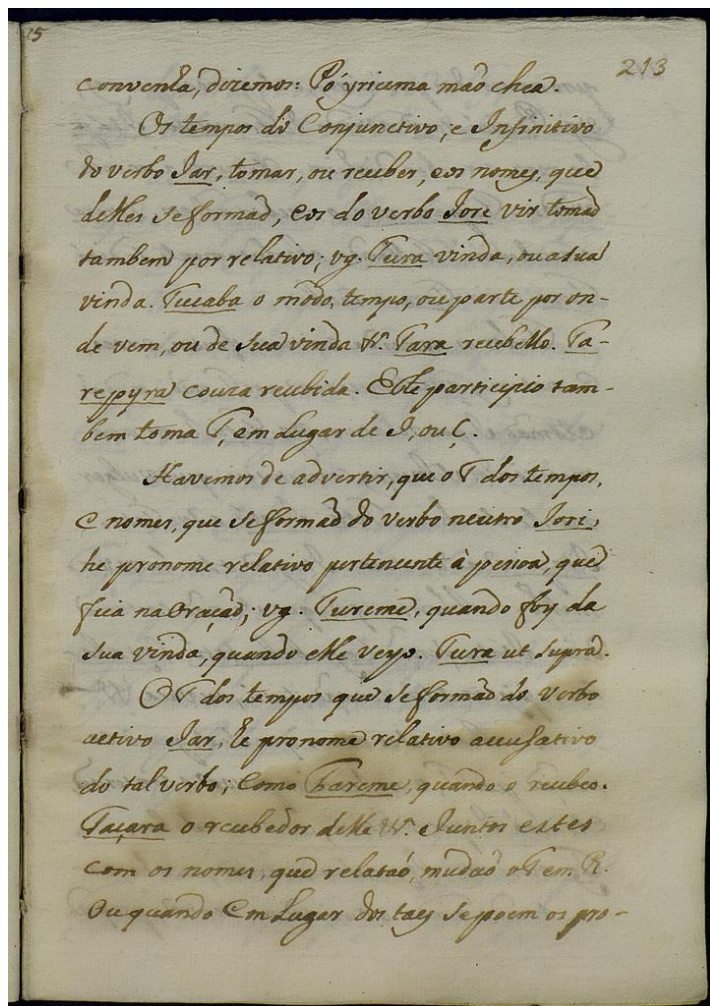 15
213
convenha, diremos: Pó yricema maõ chea.
Os tempos do Conjunctivo, e Infinitivo
do verbo Jar, tomar, ou receber, e os nomes, que
delles se formaõ, e os do verbo Jore vir tomaõ
tambem por relativo; vg. Tura vinda, ou a sua
vinda. Tucaba o modo, tempo, ou parte por on-
de vem, ou de sua vinda &. Tara recebello. Ta-
repyra couza recebida. Este participio tam-
bem toma T, em Lugar de J, ou Ç.
Havemos de advertir, que o T dos tempos,
e nomes, que se formaõ do verbo neutro Jori,
he pronome relativo pertencente à pessoa, que
fica na Oraçaõ; vg. Tureme, quando foy da
sua vinda, quando elle veyo. Tura ut supra.
O T dos tempos que se formaõ do verbo
activo Jar, he pronome relativo accusativo
do tal verbo; como Thareme, quando o recebeo.
Taçara o recebedor delle &. Juntos estes
com os nomes, que relataõ, mudaõ o T em R.
Ou quando em Lugar dos taes se poem os pro-